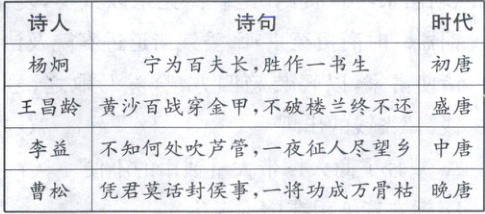 诗人 诗句 时代
杨炯 宁为百夫长,胜作一书生 初唐
王昌龄 黄沙百战穿金甲,不破楼兰终不还 盛唐
李益 不知何处吹芦管,一夜征人尽望乡 中唐
曹松 凭君莫话封侯事,一将功成万骨枯 晚唐